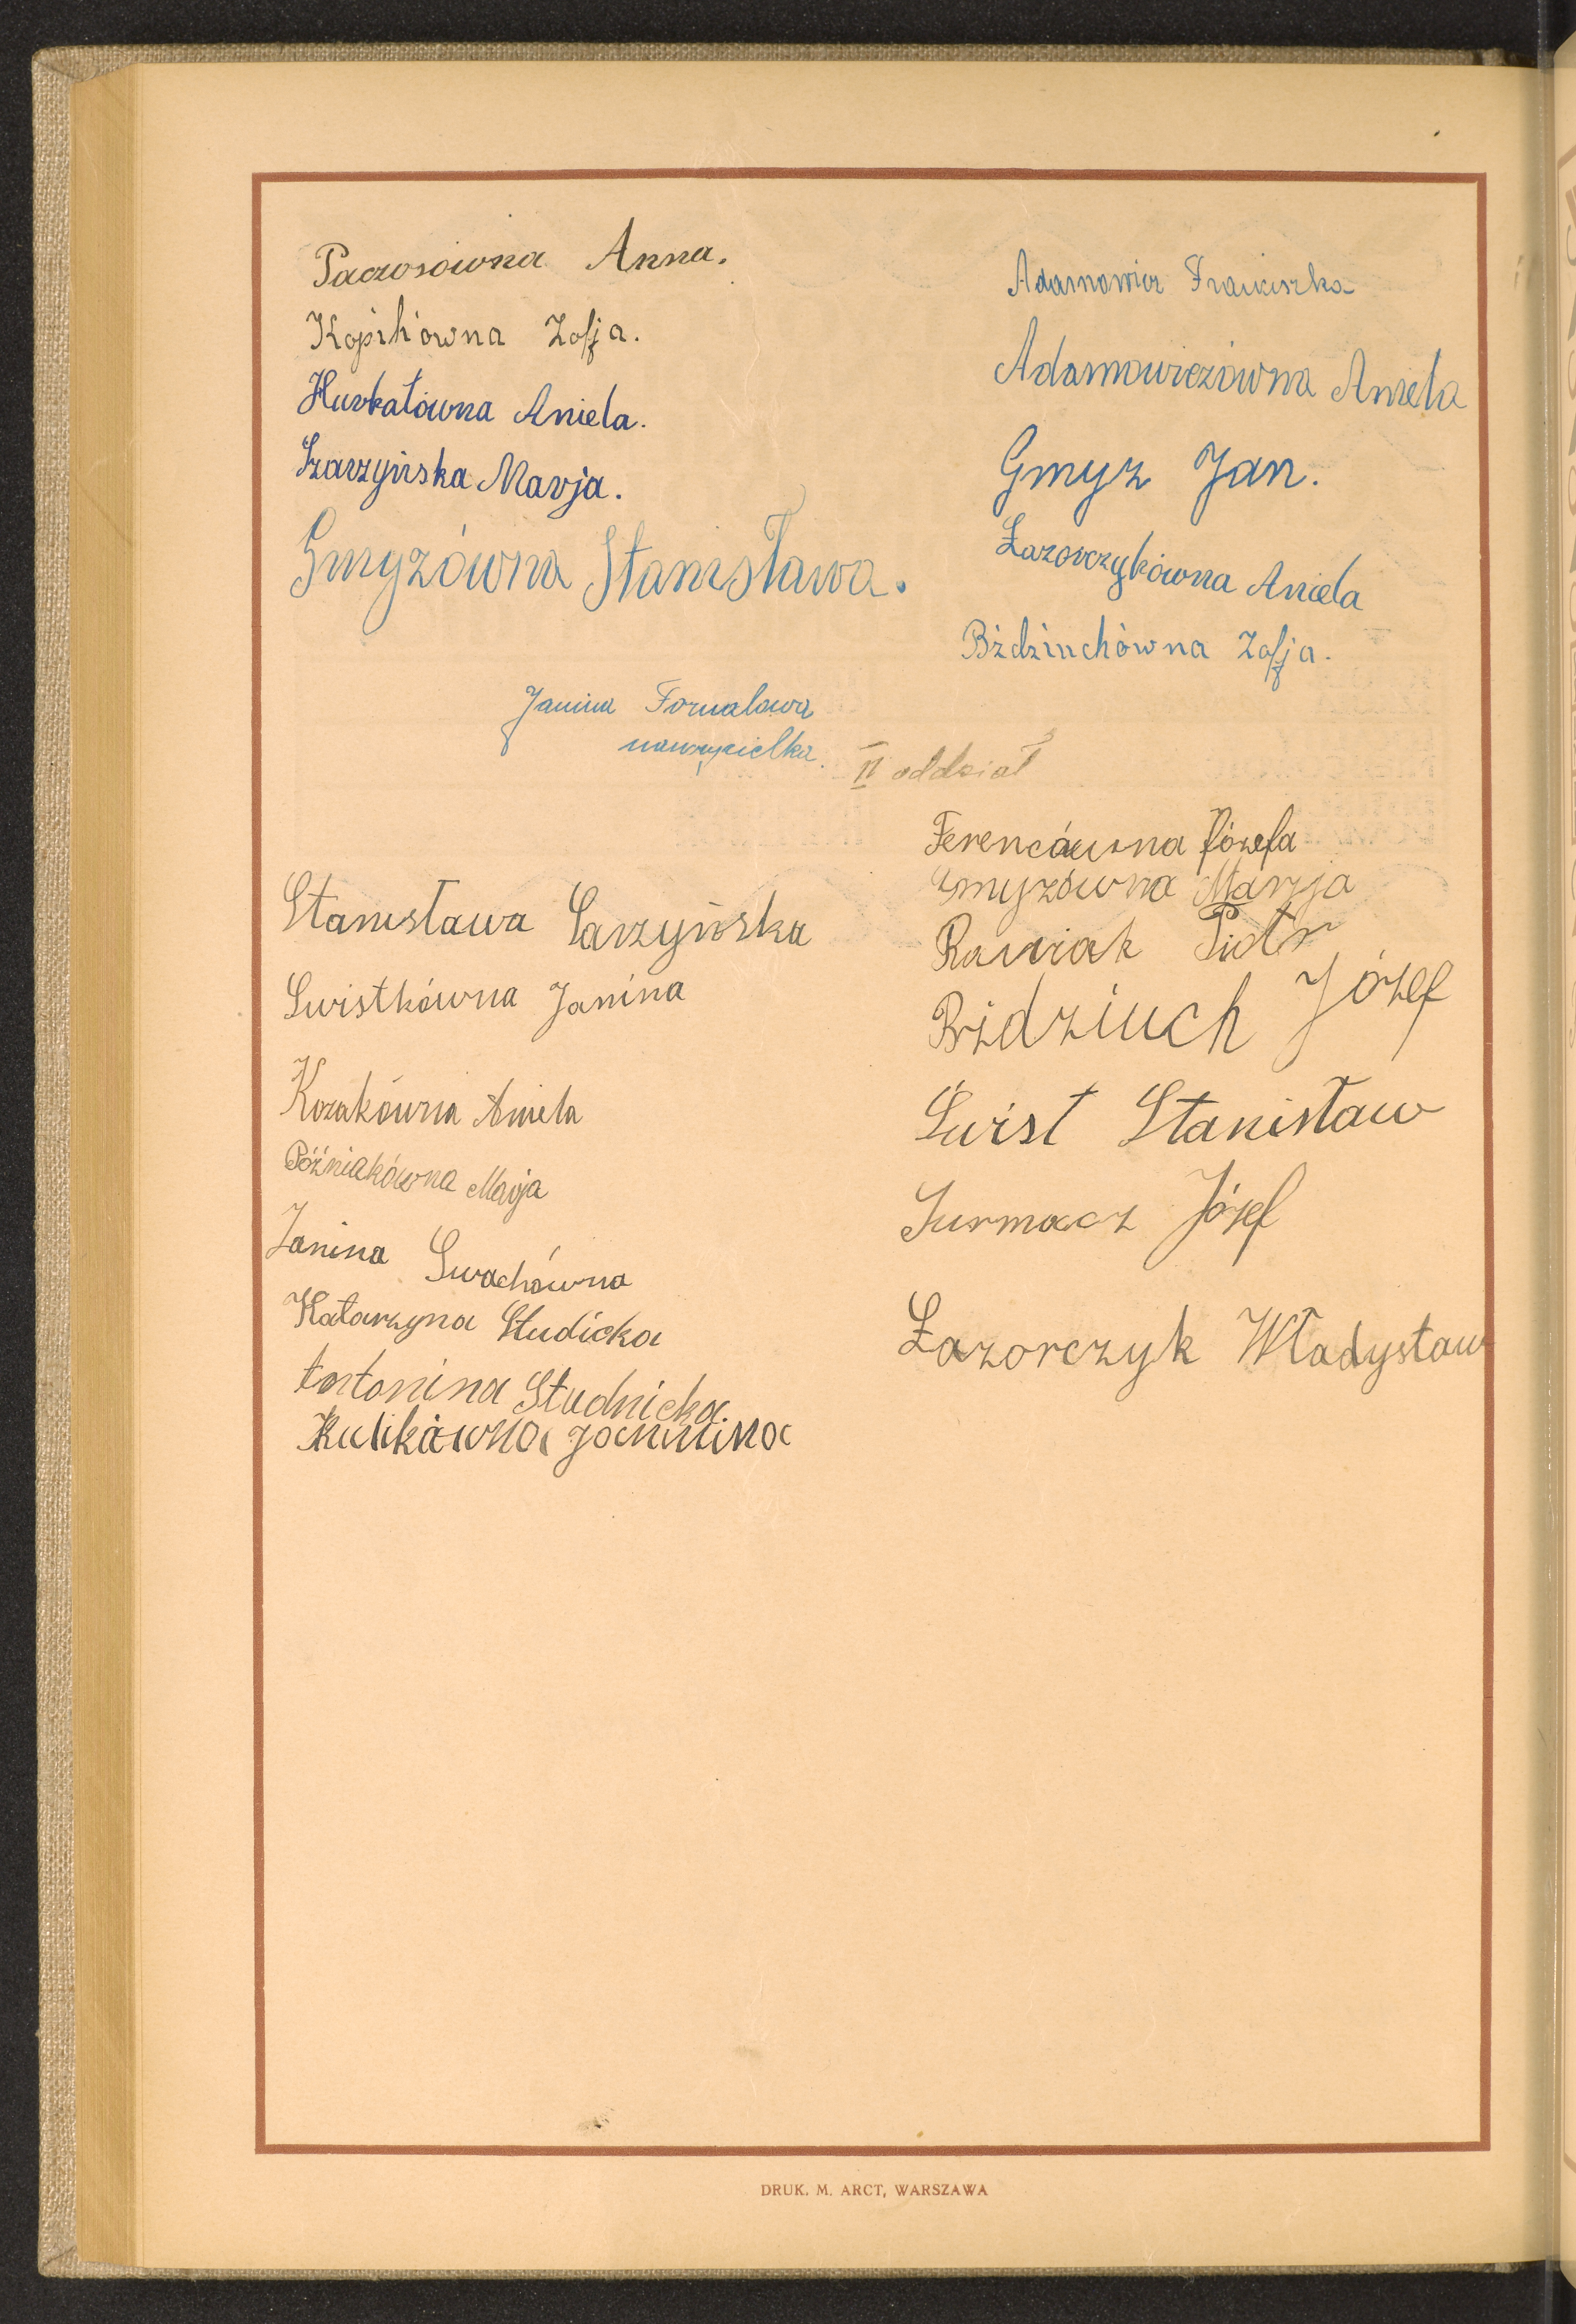 Paczosówna Anna.
Kopik'ówna Zofja.
Hurkałówna Aniela.
Szarzyńska Marja.
Gmyzówna Stanisława.
Adamowicz Franciszka
Adamowiczówna Aniela
Gmyz Jan.
Łazorczykówna Aniela
Bździuchówna Zofja.
Janina Fornalowa
nauczycielka.
II oddział
Stanisława Sarzyńska
Swistkówna Janina
Kozakówna Aniela
Póżniakówna Marja
Janina Swachówna
Katarzyna Studicka
Antonina Studnicka.
Kulikówna Janinina
Ferencówna Józefa
Gmyzówna Marja
Rawiak Piotr
Bździuch Józef
Świst Stanisław
Surmacz Józef
Łazorczyk Władysław
DRUK. M. ARCT, WARSZAWA